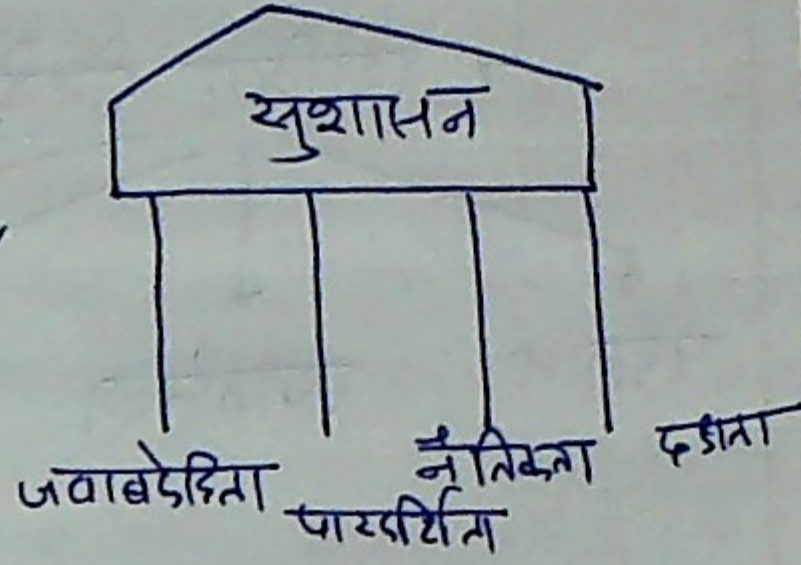 सुशासन
जवाबदेहिता
पारदर्शिता
नैतिकता
दक्षता